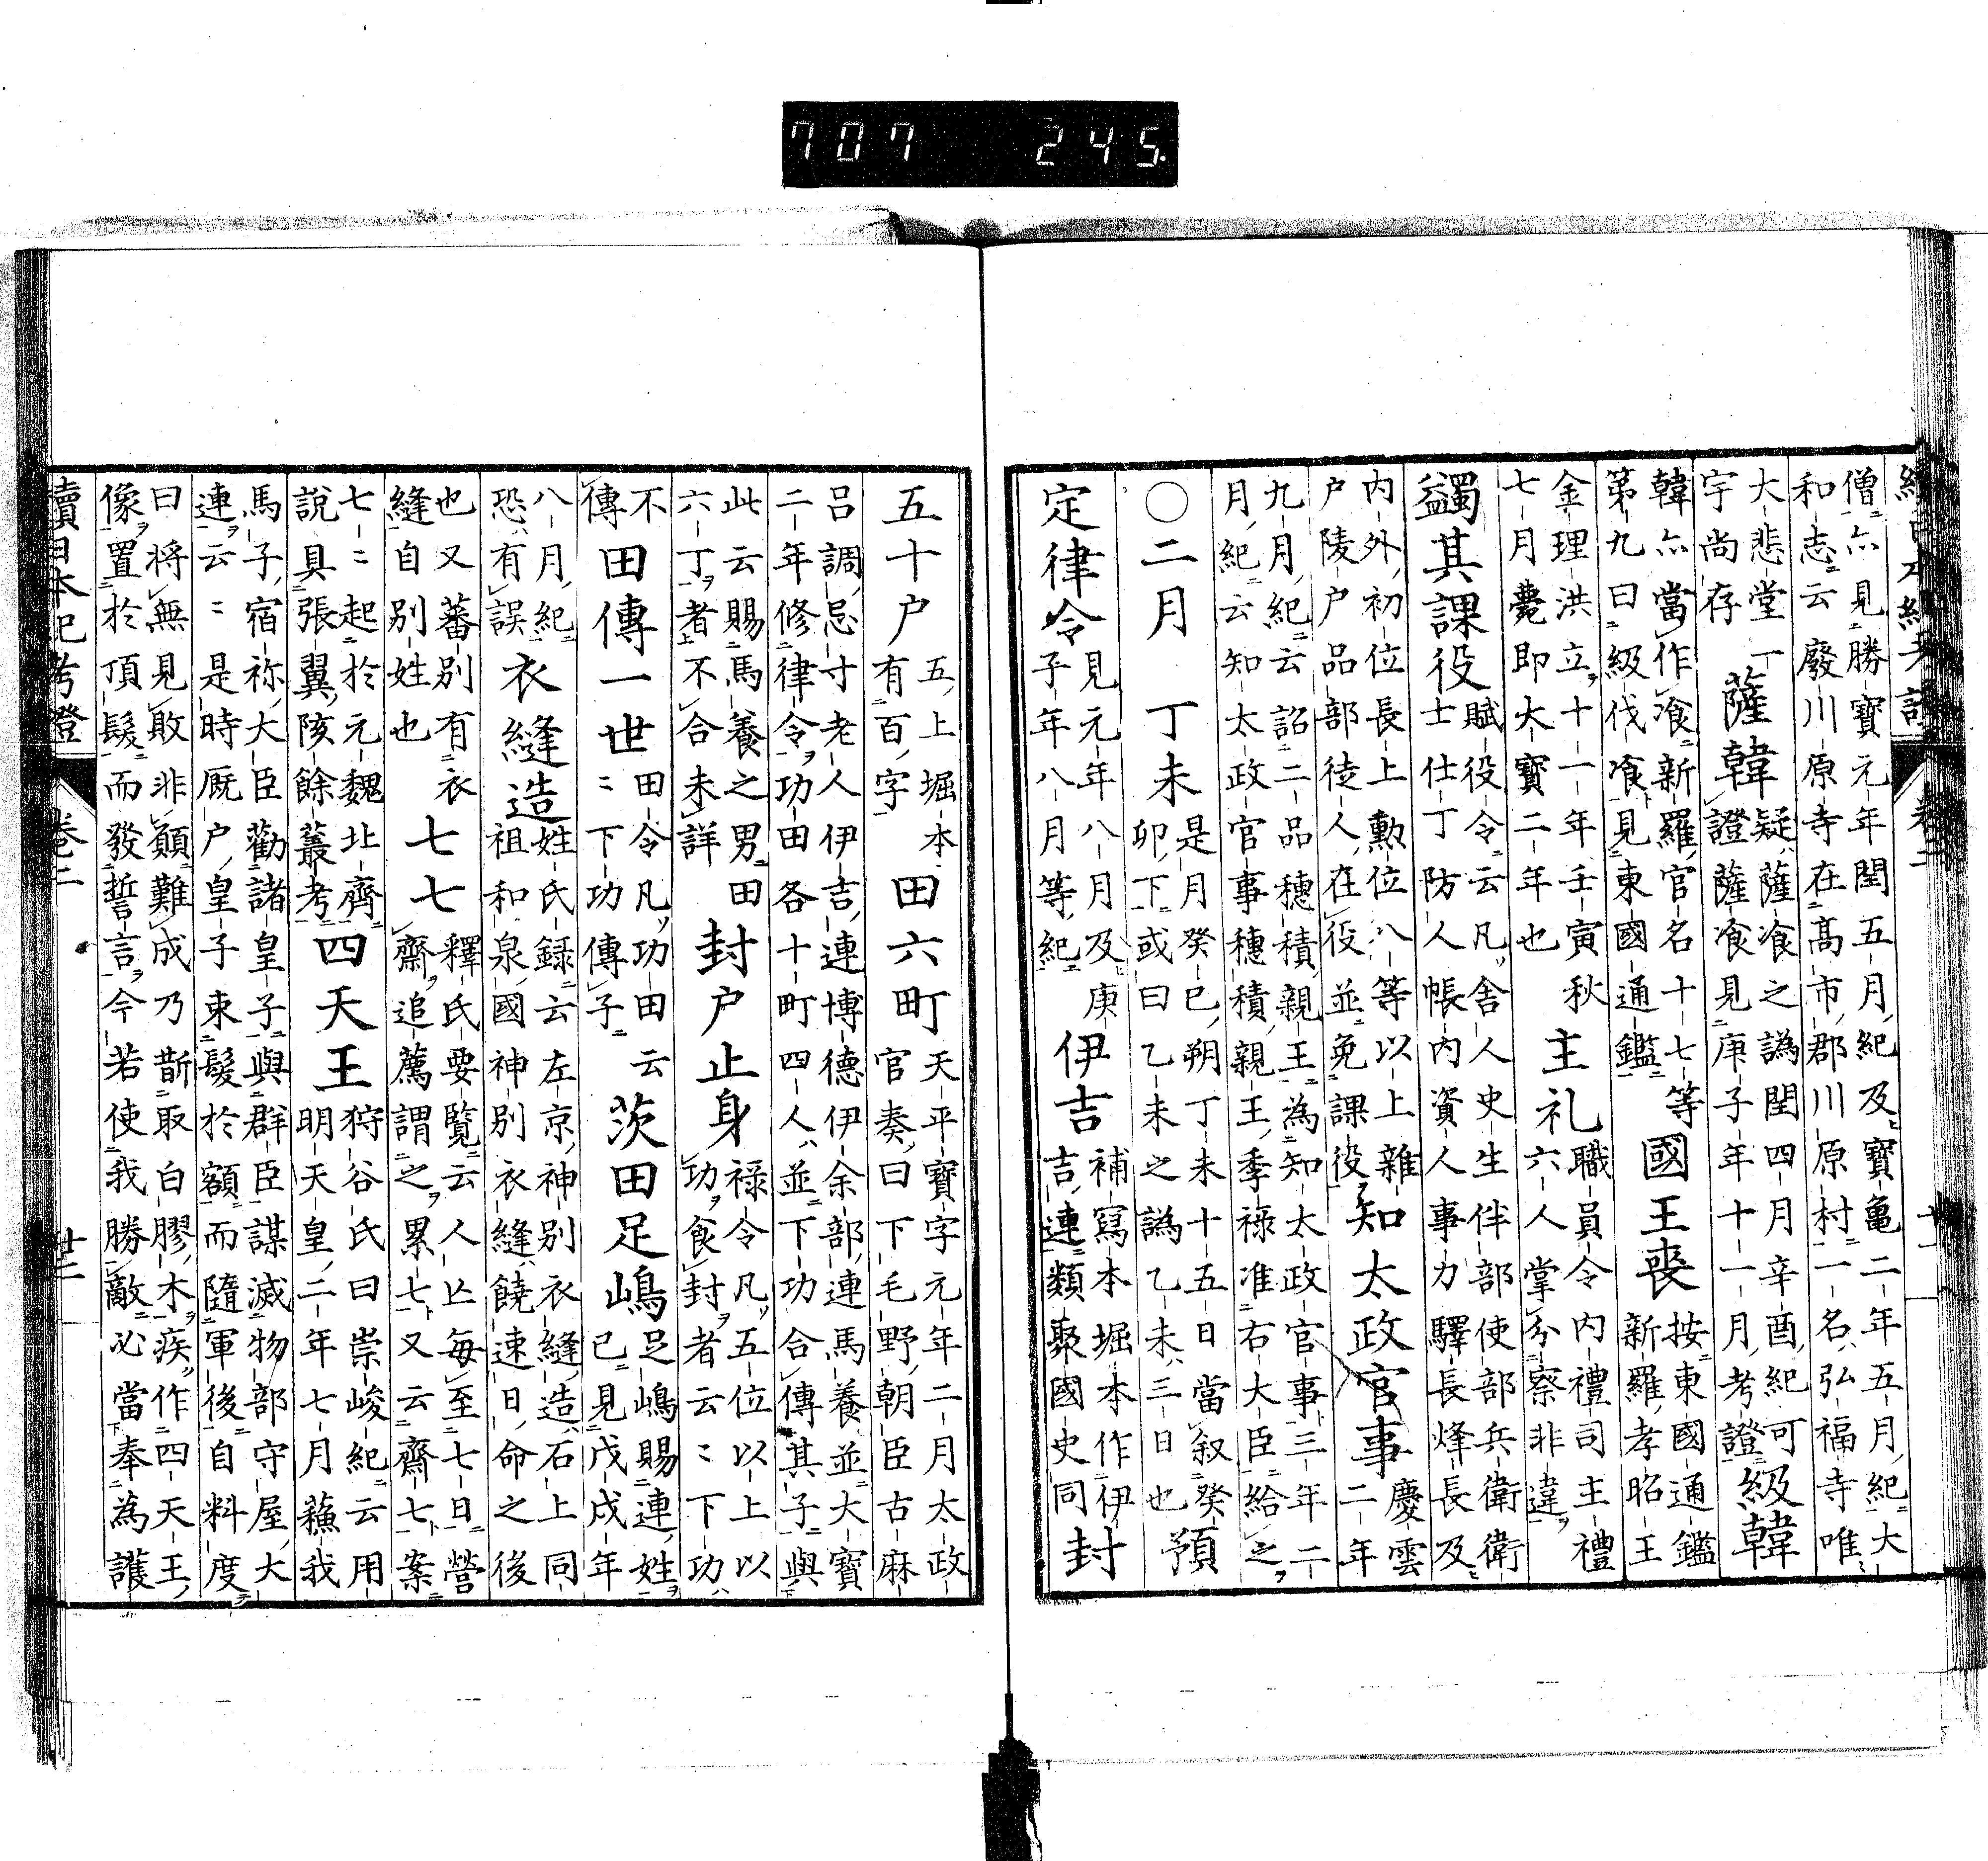 707 245.
僧亦見勝寶元年閏五月紀及寶亀二年五月紀大
和志云廢川原寺在髙市郡川原村一名弘福寺唯
大悲堂一
宇尚存
薩韓
疑薩飡之譌閏四月辛酉紀可
證薩飡見庚子年十一月考證
級韓
韓亦當作飡新羅官名十七等
第九曰級伐飡見東國通鑑
國王喪
按東國通鑑
新羅孝昭王
金理洪立十一年壬寅秋
七月薨即大寶二年也
主礼
職員令内禮司主禮
六人掌分察非違
蠲其課役
賦役令云凡舎人史生伴部使部兵衛衛
士仕丁防人帳内資人事力驛長烽長及
内外初位長上勳位八等以上雜
户陵户品部徒人在役並免課役
知太政官事
慶雲
二年
九月紀云詔二品穗積親王為知太政官事三年二
月紀云知太政官事穗積親王季禄准右大臣給之
○二月
丁未
是月癸巳朔丁未十五日當叙癸
卯下或曰乙未之譌乙未三日也
預
定律令
見元年八月及庚
子年八月等紀
伊吉
補寫本堀本作伊
吉連類聚國史同
封
五十户
五上堀本
有百字
田六町
天平寶字元年二月太政
官奏曰下毛野朝臣古麻
吕調忌寸老人伊吉連博德伊余部連馬養並大寶
二年修律令功田各十町四人並下功合傳其子與
此云賜馬養之男田
六丁者不合未詳
封户止身
禄令凡五位以上以
功食封者云〻下功
不
傳
田傳一世
田令凡功田云
〻下功傳子
茨田足嶋
足嶋賜連姓
已見戊戌年
八月紀
恐有誤
衣縫造
姓氏録云左京神别衣縫造石上同
祖和泉國神别衣縫饒速日命之後
也又蕃别有衣
縫自别姓也
七七
釋氏要覧云人亾每至七日營
齋追薦謂之累七又云齋七案
七〻起於元魏北齊
說具張翼陔餘叢考
四天王
狩谷氏曰崇峻紀云用
明天皇二年七月蘓我
馬子宿祢大臣勸諸皇子與群臣謀滅物部守屋大
連云〻是時厩户皇子束髮於額而隨軍後自料度
曰将無見敗非願難成乃斮取白膠木疾作四天王
像置於頂髮而發誓言今若使我勝敵必當奉為護
續日本紀考證
卷二
廿二